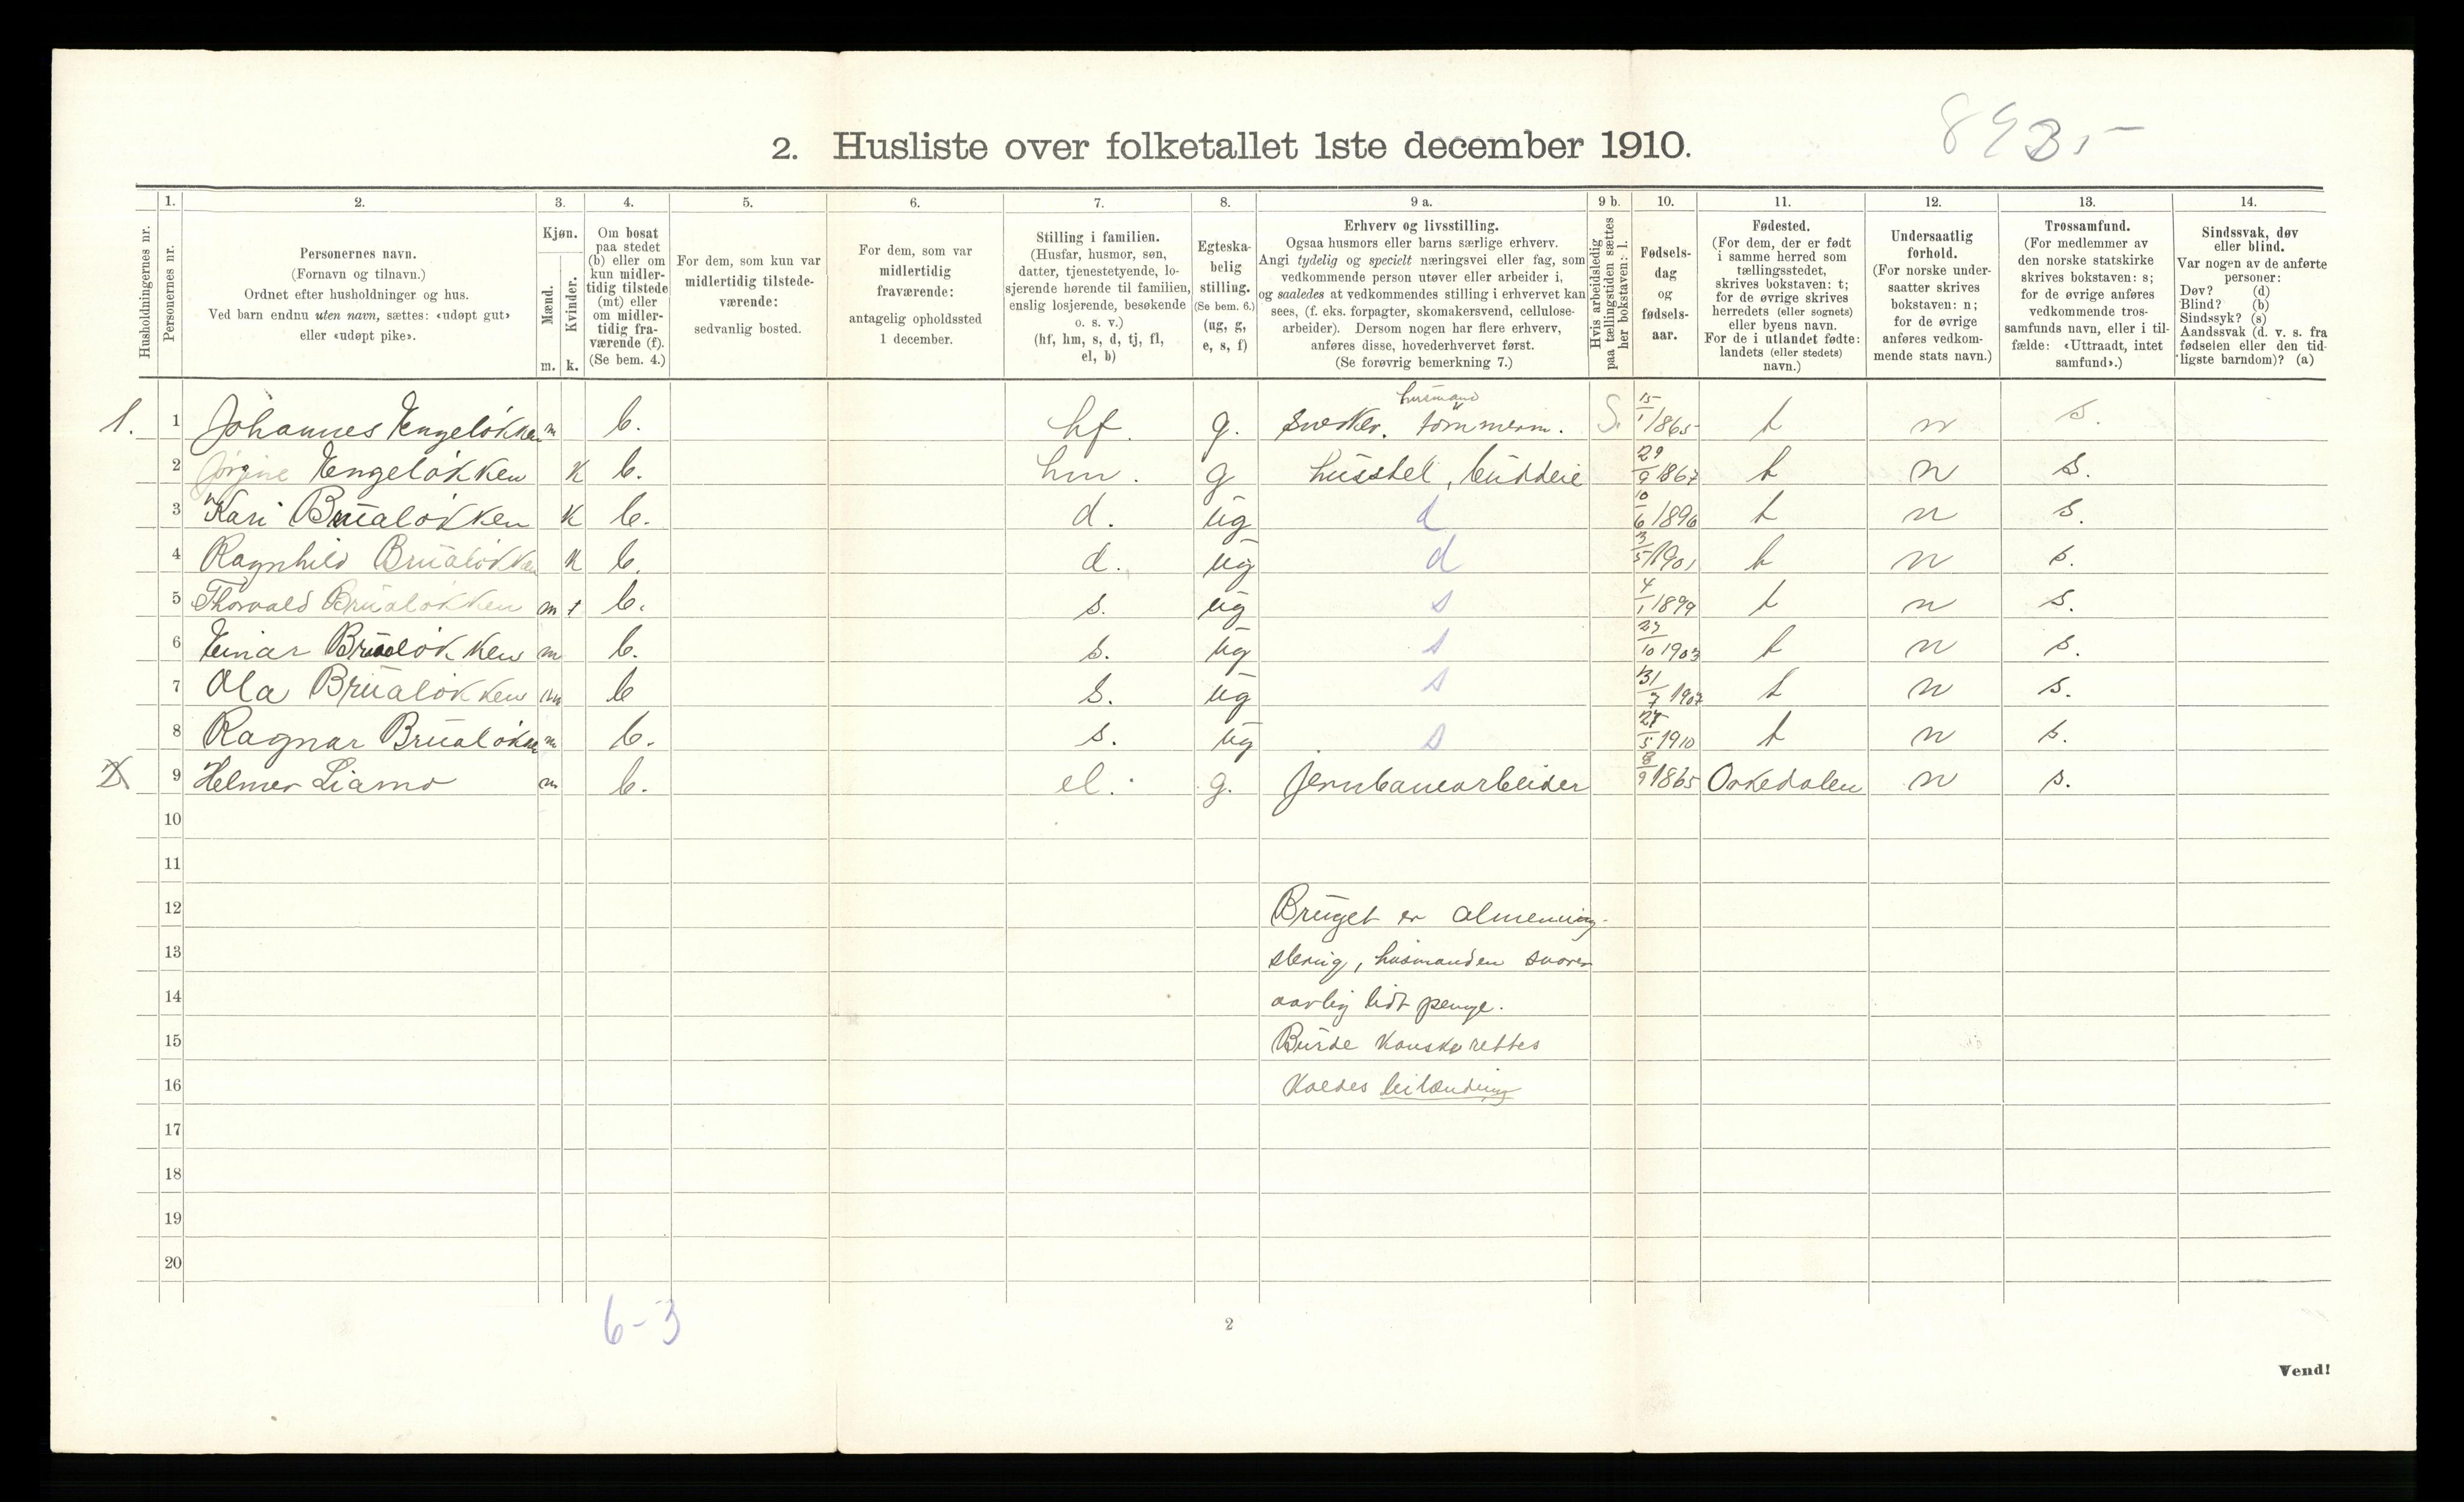 2. Husliste over folketallet 1ste december 1910.
Husholdningernes nr.
1.
Personernes nr.
2.
Personernes navn.
(Fornavn og tilnavn.)
Ordnet efter husholdninger og hus.
Ved barn endnu uten navn, sættes: «udøpt gut»
eller «udøpt pike».
3.
Kjøn.
Mænd.
Kvinder.
m. k.
4.
Om bosat
paa stedet
(b) eller om
kun midler-
tidig tilstede
(mt) eller
om midler-
tidig fra-
værende (f).
(Se bem. 4.)
5.
For dem, som kun var
midlertidig tilstede-
værende:
sedvanlig bosted.
6.
For dem, som var
midlertidig
fraværende:
antagelig opholdssted
1 december.
7.
Stilling i familien.
(Husfar, husmor, søn,
datter, tjenestetyende, lo-
sjerende hørende til familien,
enslig losjerende, besøkende
o. s. v.)
(hf, hm, s, d, tj, fl,
el, b)
8.
Egteska-
belig
stilling.
(Se bem. 6.)
(ug, g,
e, s, f)
9 a.
Erhverv og livsstilling.
Ogsaa husmors eller barns særlige erhverv.
Angi tydelig og specielt næringsvei eller fag, som
vedkommende person utøver eller arbeider i,
og saaledes at vedkommendes stilling i erhvervet kan
sees, (f. eks. forpagter, skomakersvend, cellulose-
arbeider). Dersom nogen har flere erhverv,
anføres disse, hovederhvervet først.
(Se forøvrig bemerkning 7.)
9 b.
Hvis arbeidsledig
paa tællingstiden sættes
her bokstaven: l.
10.
Fødsels-
dag
og
fødsels-
aar.
11.
Fødested.
(For dem, der er født
i samme herred som
tællingsstedet,
skrives bokstaven: t;
for de øvrige skrives
herredets (eller sognets)
eller byens navn.
For de i utlandet fødte:
landets (eller stedets)
navn.)
12.
Undersaatlig
forhold.
(For norske under-
saatter skrives
bokstaven: n;
for de øvrige
anføres vedkom-
mende stats navn.)
13.
Trossamfund.
(For medlemmer av
den norske statskirke
skrives bokstaven: s;
for de øvrige anføres
vedkommende tros-
samfunds navn, eller i til-
fælde: «Uttraadt, intet
samfund».)
14.
Sindssvak, døv
eller blind.
Var nogen av de anførte
personer:
Døv? (d)
Blind? (b)
Sindssyk? (s)
Aandssvak (d. v. s. fra
fødselen eller den tid-
ligste barndom)? (a)
husmand
1. 1 Johannes Engeløkken m b. hf. g. snekker. tømmerm. S. 15/1 1865 t n s.
2 Jørgine Engeløkken k b. hm. g husstel, buddeie 29/9 1867 t n s.
3 Kari Brualøkken k b. d. ug d 10/6 1896 t n s.
4 Ragnhild Brualøkken k b. d. ug d 3/5 1901 t n s.
5 Thorvald Brualøkken m b. s. ug s 4/1 1899 t n s.
6 Einar Brualøkken m b. s. ug s 27/10 1903 t n s.
7 Ola Brualøkken m b s. ug s 31/7 1907 t n s.
8 Ragnar Brualøkken m b. s. ug s 27/5 1910 t n s.
2 9 Helmer Liamo m b. el. g. jernbanearbeider 8/9 1865 Orkedalen n s.
10
11
12 Bruget er almenning-
13 slering, husmanden svarer
14 aarlig lidt penge.
15 Burde kanske rettes
16 kaldes leilænding
17
18
19
20
6-3
2
Vend!